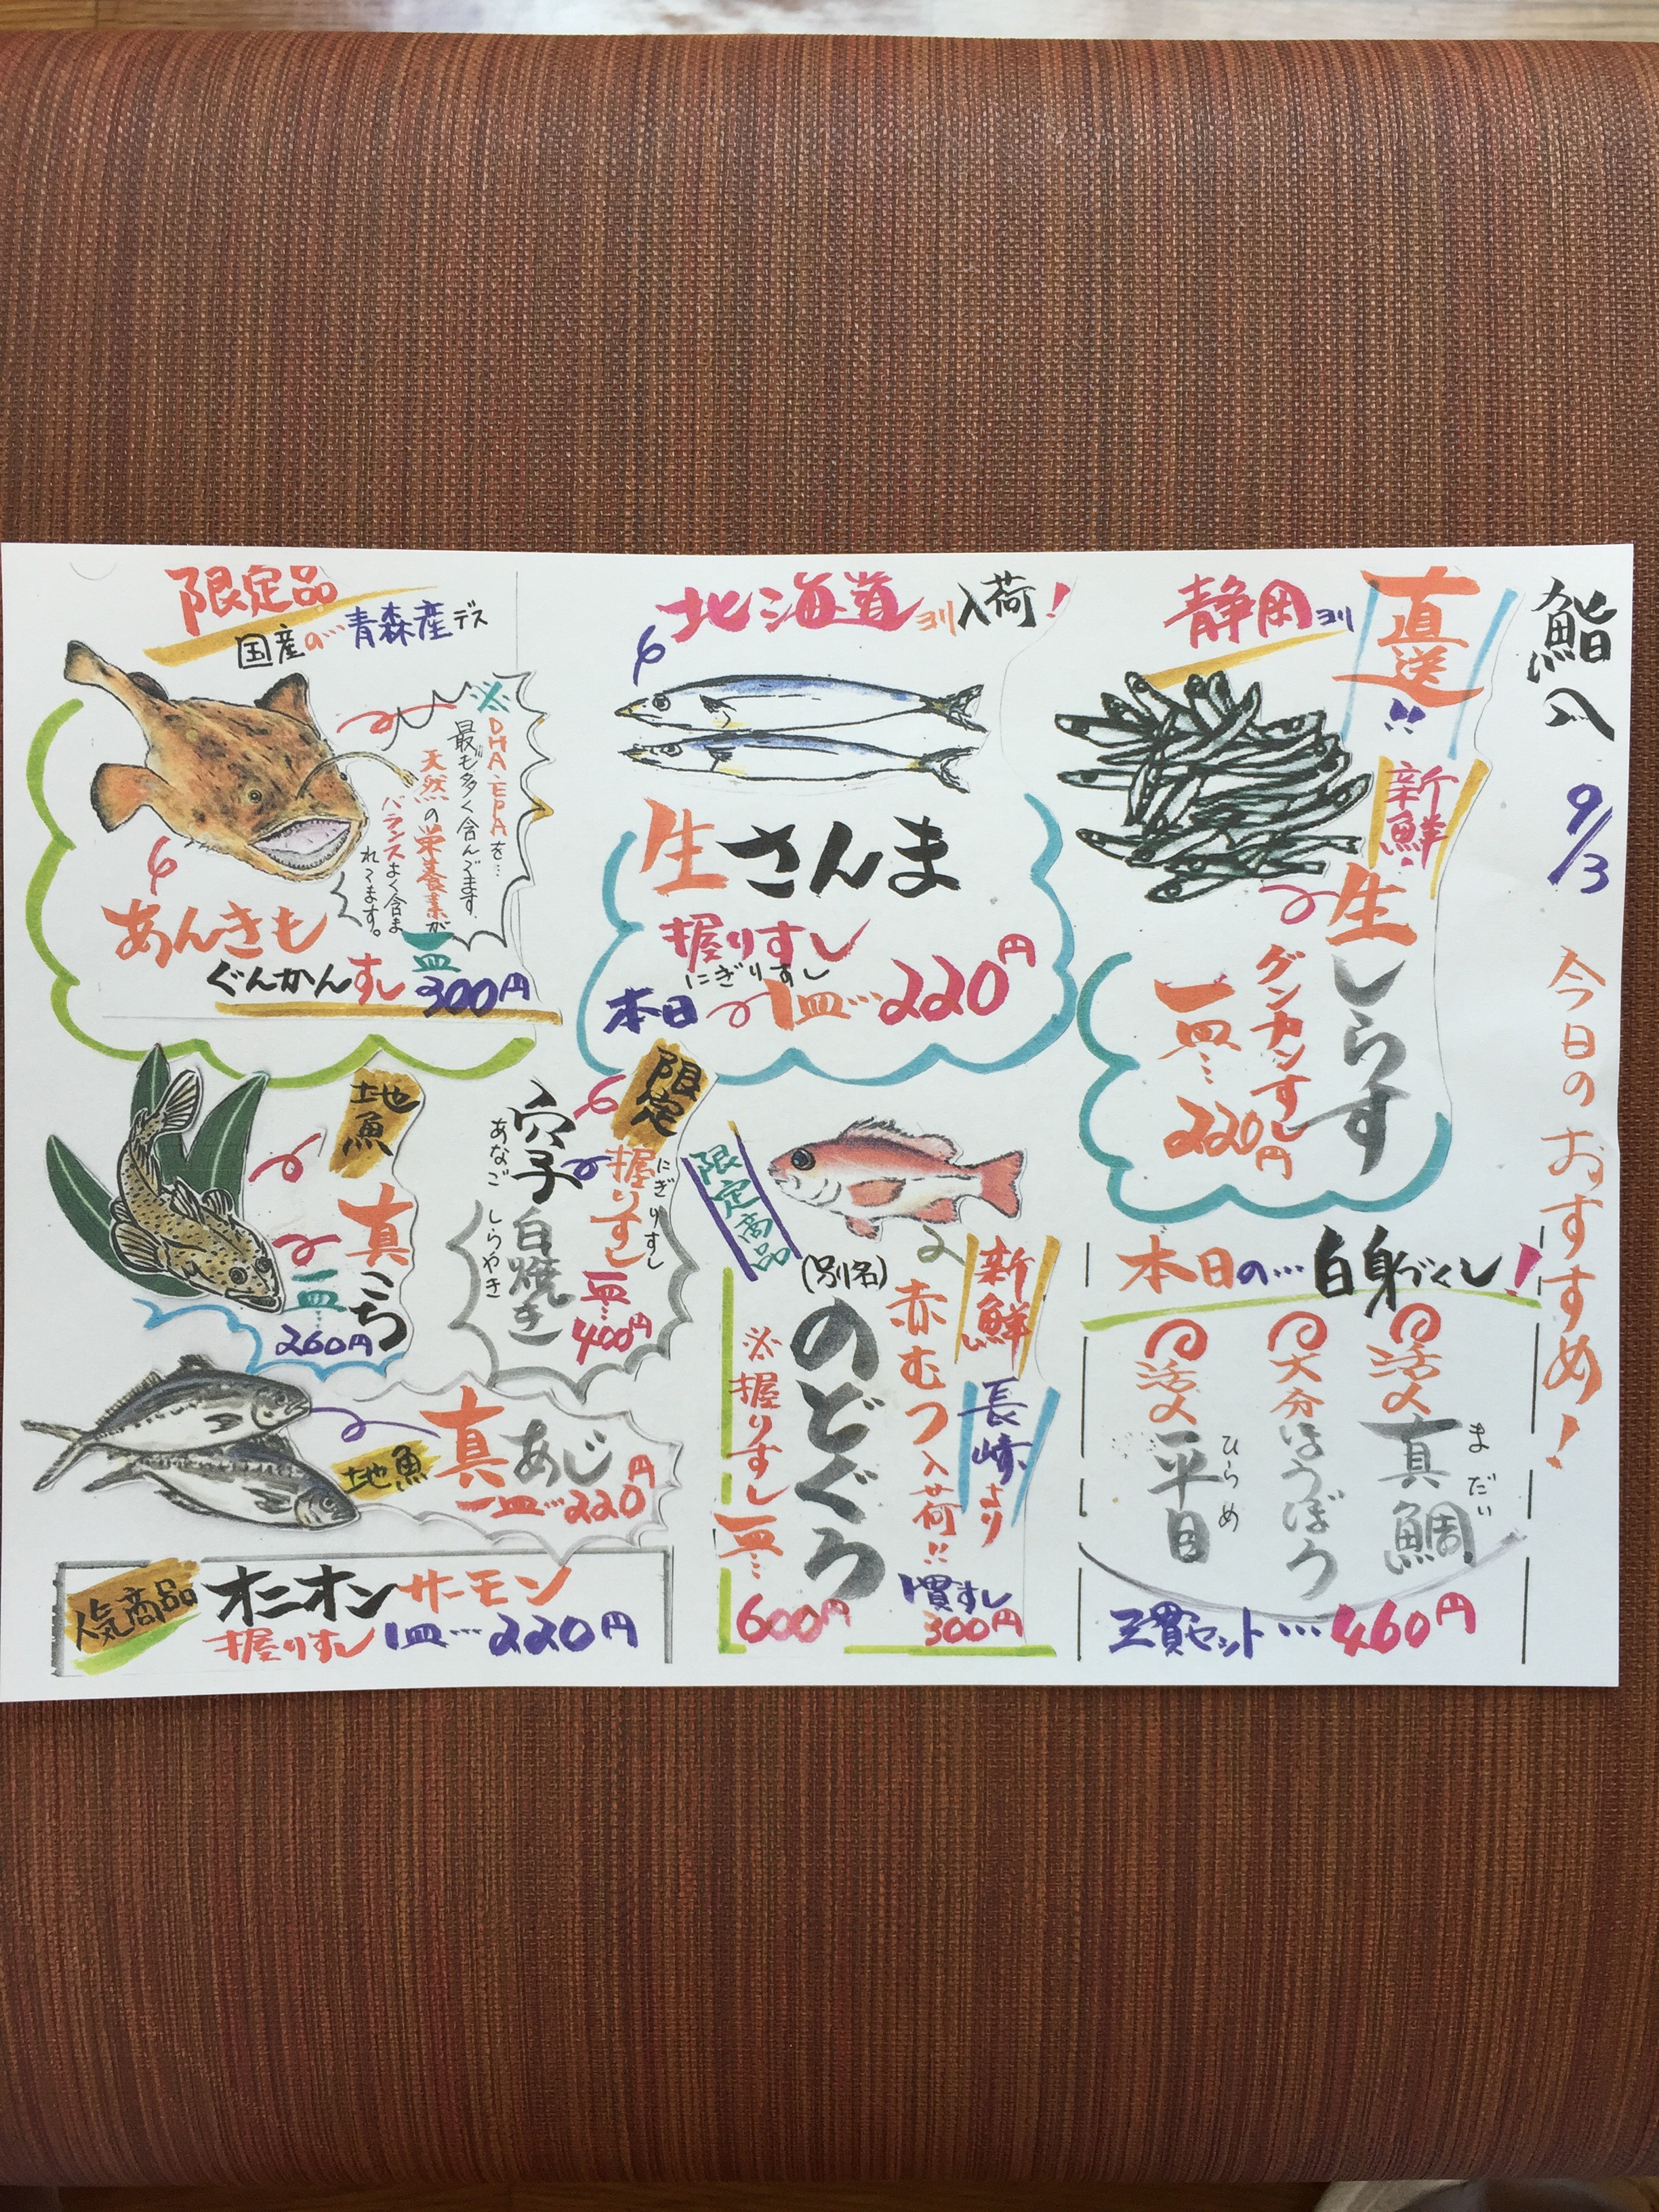 鮨人
9/3
今日のおすすめ!
静岡ヨリ
直送!!
新鮮!
生しらす
グンカンすし
一皿…
220円
北海道ヨリ入荷!
生さんま
握りすし
にぎりすし
本日 1皿…220円
限定品
国産の…青森産デス
※DHA・EPAを…
最も多く含んでます。
天然の栄養素が
バランスよく含ま
れてます。
あんきも
ぐんかんすし
一皿
300円
本日の…白身づくし!
活〆真鯛
まだい
大分ほうぼう
活〆平目
ひらめ
三貫セット…460円
限定商品
新鮮
長崎より
赤むつ入荷!!
(別名)
のどぐろ
※握りすし一皿…
600円
1貫すし
300円
限定
穴子白焼き
あなご しらやき
握りすし
にぎりすし
一皿…
400円
地魚
真こち
一皿…
260円
地魚
真あじ
一皿…220円
人気商品
オニオンサーモン
握りすし 1皿…220円